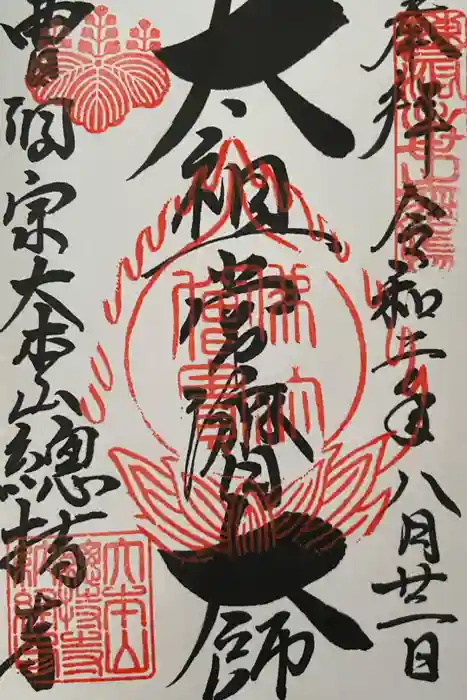 奉拝 令和二年八月廿一日
太祖常濟大師
曹洞宗大本山總持寺
佛法
僧寶
大本山
總持寺